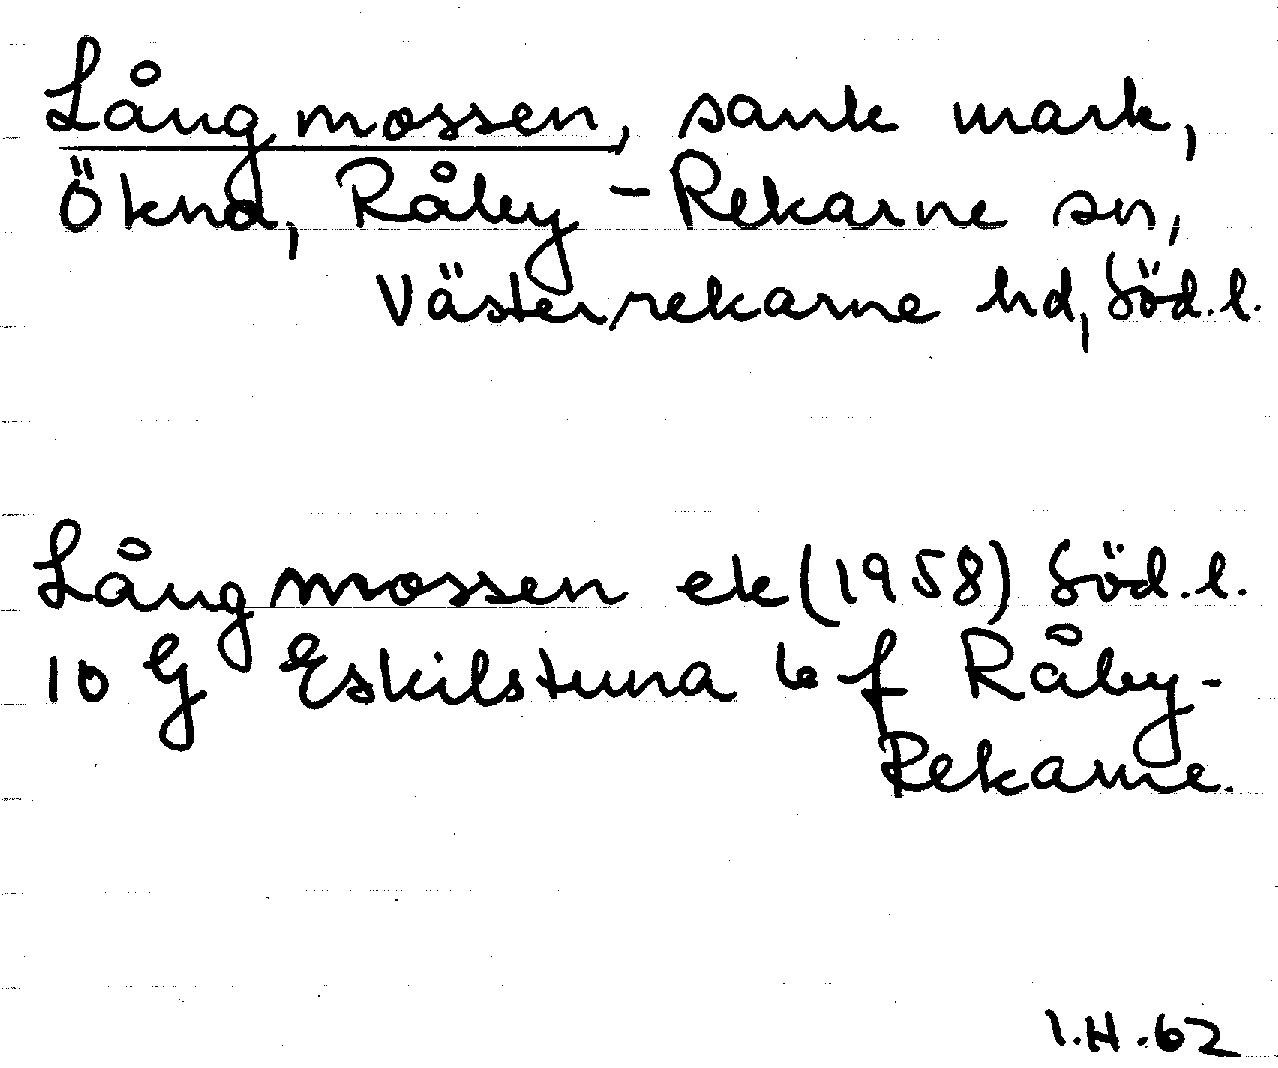 Långmossen, sank mark,
Ökna, Råby-Rekarne sn,
Västerrekarne hd, Söd.l.
Långmossen ek (1958) Söd.l.
10 G Eskilstuna 6 f Råby-
Rekarne.
I.H.62